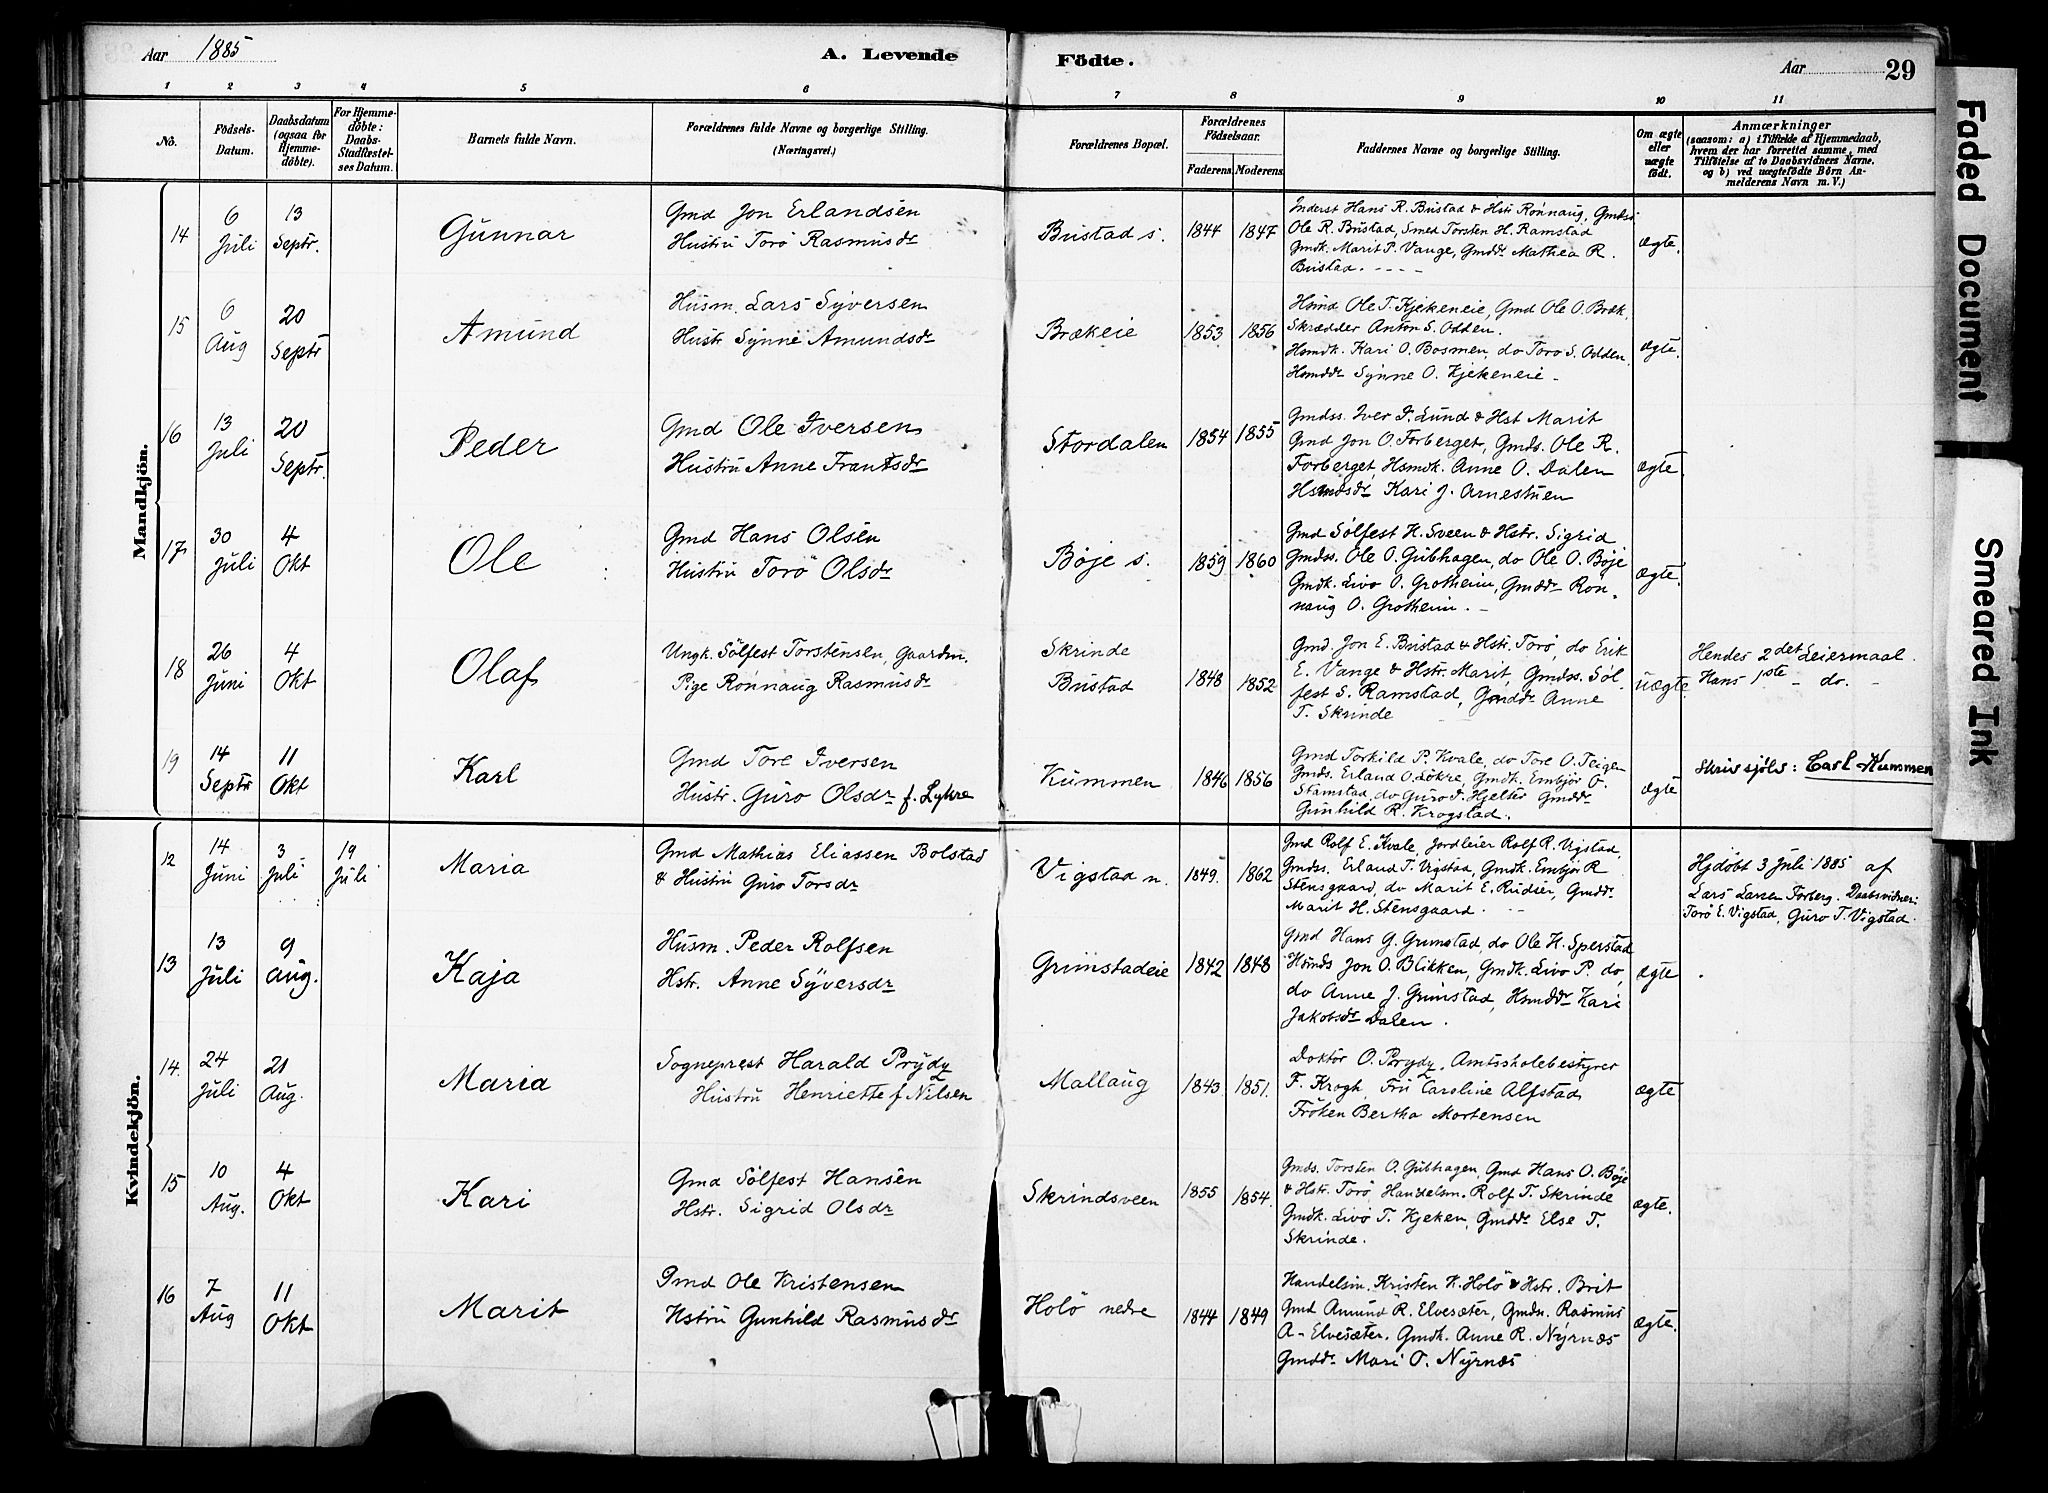 Aar 1885
A. Levende Födte.
Aar 29
1 2 3 4 5 6 7 8 9 10 11
No.
Födsels-
Datum.
Daabsdatum
(ogsaa for
Hjemme-
döbte).
For Hjemme-
döbte:
Daabs-
Stadfæstel-
ses Datum.
Barnets fulde Navn.
Forældrenes fulde Navne og borgerlige Stilling.
(Næringsvei.)
Forældrenes Bopæl.
Forældrenes
Födselsaar.
Faderens Moderens
Faddernes Navne og borgerlige Stilling.
Om ægte
eller
uægte
født.
Anmærkninger
(saasom: a) i Tilfælde af Hjemmedaab,
hvem der har forrettet samme, med
Tilføielse af to Daabsvidners Navne.
og b) ved uægtefödte Börn An-
melderens Navn m. V.)
Mandkjön.
14
6
Juli
13
Septr.
Gunnar
Gmd Jon Erlandsen
Hustru Torö Rasmusdr
Bustad s.
1844 1847
Inderst Hans R. Bustad & Hstr Rönnaug, Gmdss
Ole R. Bustad, Smed Torsten H. Ramstad
Gmdk. Marit P. Vange, Gmddr Mathea R.
Bustad.
ægte.
15
6
Aug
20
Septr
Amund
Husm. Lars Syversen
Hustr Synne Amundsdr
Brækeie
1853 1856
Hsmd Ole T. Kjekeneie, Gmd Ole O. Bræk,
Skrædder Anton S. Odden.
Hsmdk. Kari O. Bosmen, do Torö S. Odden
Hsmddr Synne O. Kjekeneie
ægte.
16
13
Juli
20
Septr.
Peder
Gmd Ole Iversen
Hustru Anne Frantsdr
Stordalen
1854 1855
Gmdss. Iver I. Lund & Hst Marit
Gmd Jon O. Forberget, Gmds. Ole R.
Forberget, Hsmdk. Anne O. Dalen
Hsmdsdr Kari J. Arnestuen
ægte.
17
30
Juli
4
Okt
Ole
Gmd Hans Olsen
Hustru Torö Olsdr
Böje s.
1859 1860
Gmd Sölfest H. Sveen & Hstr. Sigrid
Gmdss. Ole O. Gubhagen, do Ole O. Böje
Gmdk. Livo O. Grotheim, Gmddr Rön-
naug O. Grotheim.
ægte.
18
26
Juni
4
Okt
Olaf
Ungk. Sölfest Torstensen, Gaardm.
Pige Rönnaug Rasmusdr
Skrinde
Bustad
1848 1852
Gmd. Jon E. Bustad & Hstr. Torö, do Erik
E. Vange & Hstr. Marit, Gmdss. Söl-
fest S. Ramstad, Gmddr Anne
T. Skrinde
uægte.
Hendes 2det Leiermaal.
Hans 1ste - do. -
19
14
Septr
11
Okt
Karl
Gmd Tore Iversen
Hustr. Guro Olsdr f. Lykre
Kummen
1846 1856
Gmd Torkild P. Kvale, do Tore O. Teigen
Gmds. Erland O. Lökre, Gmdk. Embjör O.
Stamstad, do Guro I. Hjelter Gmddr
Gunhild R. Krogstad.
ægte
Skriv sjölv: Carl Kummen
Kvindekjön.
12
14
Juni
3
Juli
19
Juli
Maria
Gmd Mathias Eliassen Bolstad
& Hustru Guro Torsdr
Vigstad n.
1849. 1862
Gmd Rolf E. Kvale, Jordleier Rolf R. Vigstad,
Gmdss. Erland T. Vigstad, Gmdk. Embjör R
Stensgaard, do Marit E. Rudser, Gmddr
Marit H. Stensgaard.
Hjdöbt 3 Juli 1885 af
Lars Larsen Forberg. Daabsvidner:
Torö E. Vigstad, Guro T. Vigstad.
13
13
Juli
9
Aug.
Kaja
Husm. Peder Rolfsen
Hstr. Anne Syversdr
Grimstadeie
1842 1848
Gmd Hans G. Grimstad, do Ole H. Sperstad
Hsmds Jon O. Blikken, Gmdk. Livo P. do,
do Anne J. Grimstad, Hsmddr Kari
Jakobsdr Dalen.
ægte
14.
24
Juli
21
Aug.
Maria
Sogneprest Harald Prydz
Hustru Henriette f Nilsen
Mallaug
1843. 1851.
Doktor O. Prydz, Amtsskolebestyrer
F. Krogh, Fru Caroline Alfstad
Fröken Bertha Mortensen
ægte
15
10
Aug.
4
Okt
Kari
Gmd Sölfest Hansen
Hstr. Sigrid Olsdr
Skrindsveen
1855 1854.
Gmds. Torsten O. Gubhagen, Gmd Hans O. Böje
& Hstr. Torö, Handelsm. Rolf T. Skrinde
Gmdk. Livö T. Kjeken, Gmddr Else T.
Skrinde.
ægte.
16
7
Aug
11
Okt
Marit
Gmd Ole Kristensen
Hstru Gunhild Rasmusdr
Holö nedre
1844 1849
Handelsm. Kristen K. Holö & Hstr. Brit
Gmd Amund R. Elvesæter, Gmdn. Rasmus
A- Elvesæter. Gmdk. Anne R. Nyrnæs
Gmddr Mari O. Nyrnæs
ægte.
Faded Document
Smeared Ink